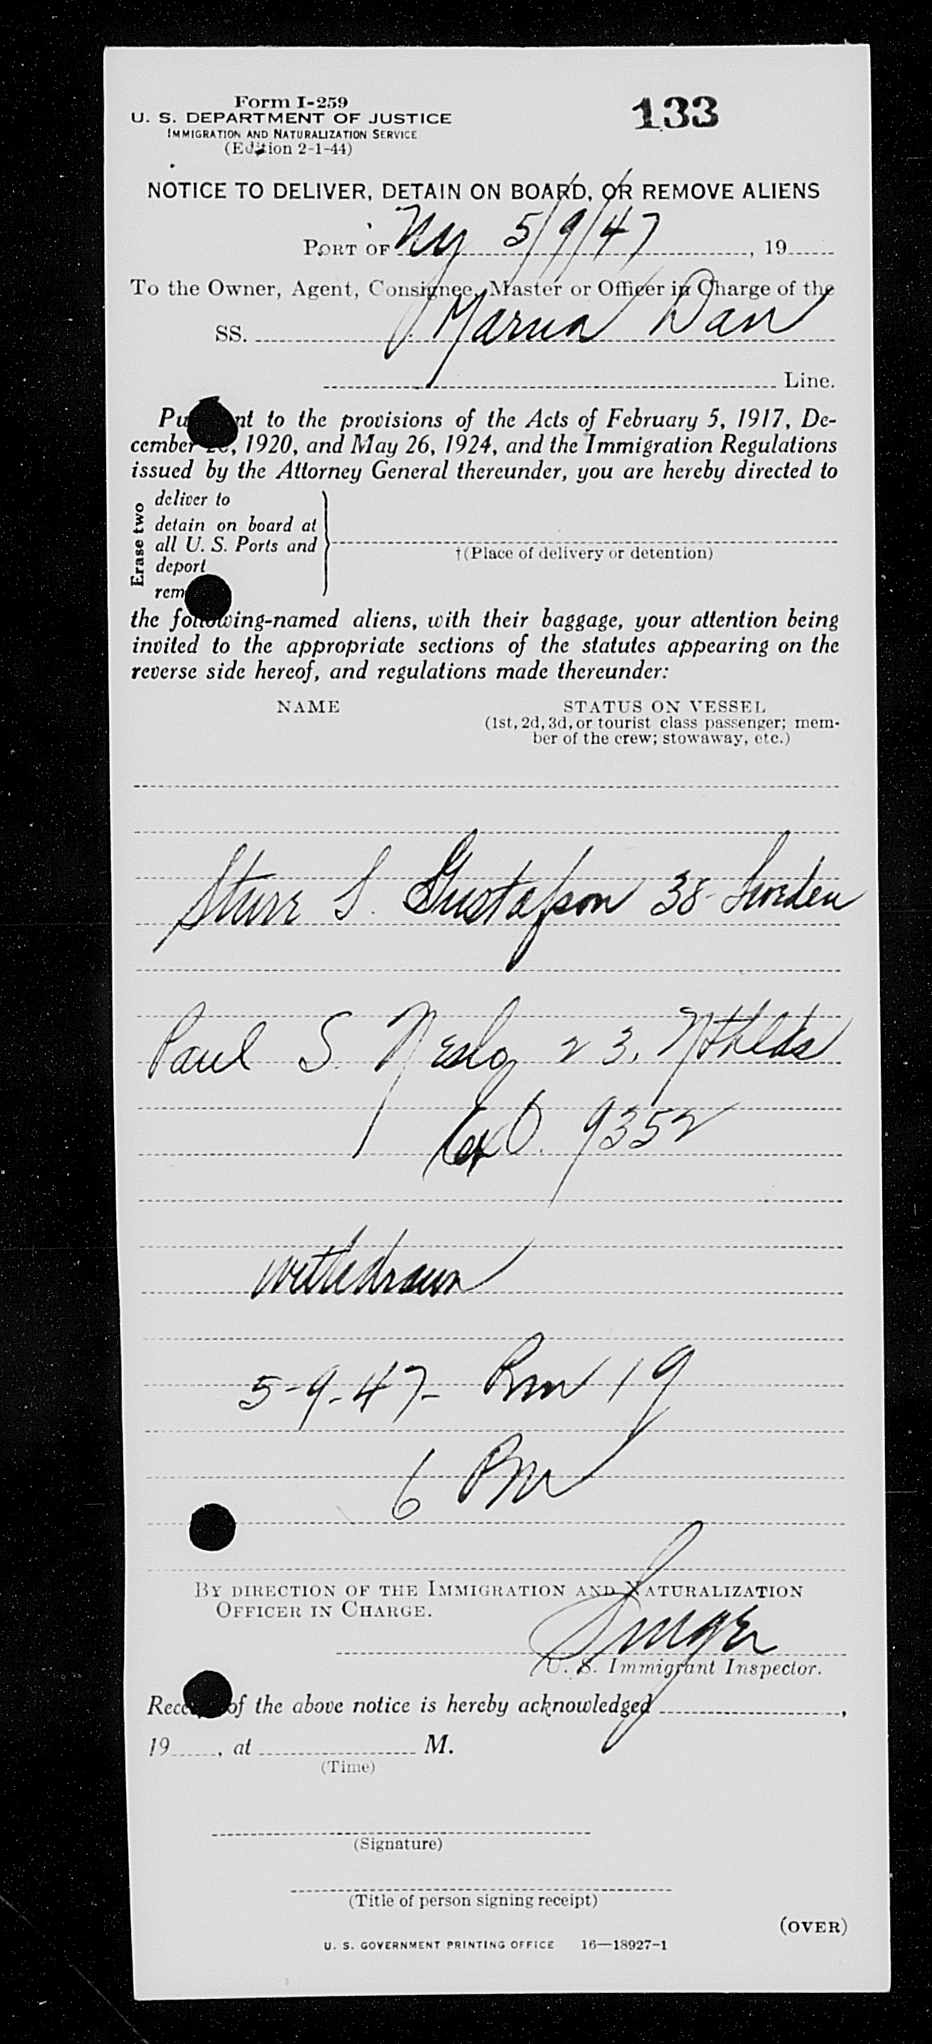 Form I-259
133
U. S. DEPARTMENT OF JUSTICE
IMMIGRATION AND NATURALIZATION SERVICE
(Edition 2-1-44)
NOTICE TO DELIVER, DETAIN ON BOARD, OR REMOVE ALIENS
PORT OF Ny 5/9/47, 19
To the Owner, Agent, Consignee, Master or Officer in Charge of the
SS. Maria Dan
Line.
to the provisions of the Acts of February 5, 1917, De-
cember , 1920, and May 26, 1924, and the Immigration Regulations
issued by the Attorney General thereunder, you are hereby directed to
Erase two
deliver to
detain on board at
all U. S. Ports and
deport
†(Place of delivery or detention)
the following-named aliens, with their baggage, your attention being
invited to the appropriate sections of the statutes appearing on the
reverse side hereof, and regulations made thereunder:
NAME
STATUS ON VESSEL
(1st, 2d, 3d, or tourist class passenger; mem-
ber of the crew; stowaway, etc.)
Sture S. Gustafson 38 - Sweden
Paul S. 23. Nthlds
9352
withdrawn
5-9-47- Rm 19
6 Pm
BY DIRECTION OF THE IMMIGRATION AND NATURALIZATION
OFFICER IN CHARGE.
Singer
U. S. Immigrant Inspector.
of the above notice is hereby acknowledged ,
19 , at M.
(Time)
(Signature)
(Title of person signing receipt)
(OVER)
U. S. GOVERNMENT PRINTING OFFICE 16—18927-1